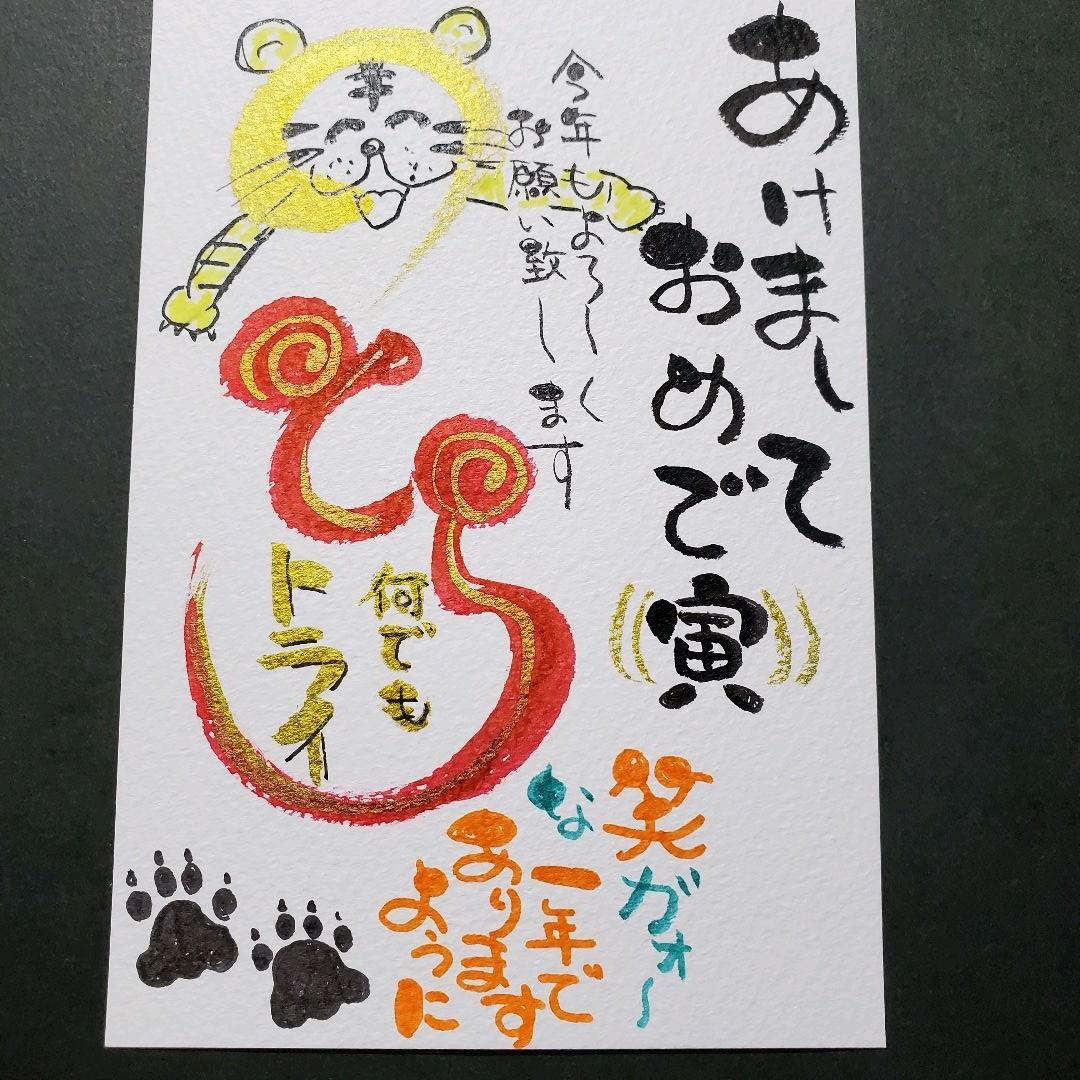 あけまして
おめで寅
今年もよろしく
お願い致します
とら
何でも
トライ
笑ガォ~
な一年で
あります
ように